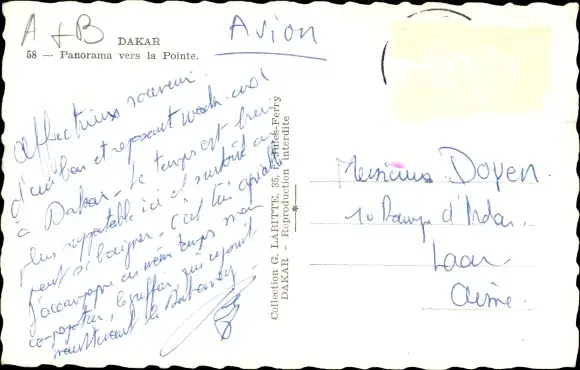 A + B
Avion
DAKAR
58 — Panorama vers la Pointe.
affectueux souvenir
d'un bon et reposant week-end
à Dakar - Le temps est bien
plus supportable ici et surtout on
peut se baigner - C'est très agréable
J'accompagne en même temps mon
le greffier, qui rejoint
maintenant le Dahomey
Collection G. LABITTE, 35, R. Jules-Ferry
DAKAR - Reproduction interdite
Messieurs Doyen
10 Rampe d'Ardon
Laon
Aisne.